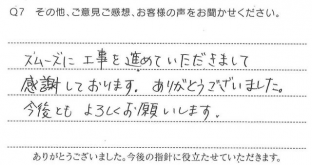 Q7 その他、ご意見ご感想、お客様の声をお聞かせください。
ズムーズに工事を進めていただきまして
感謝しております。ありがとうございました。
今後とも よろしくお願いします。
ありがとうございました。今後の指針に役立たせていただきます。